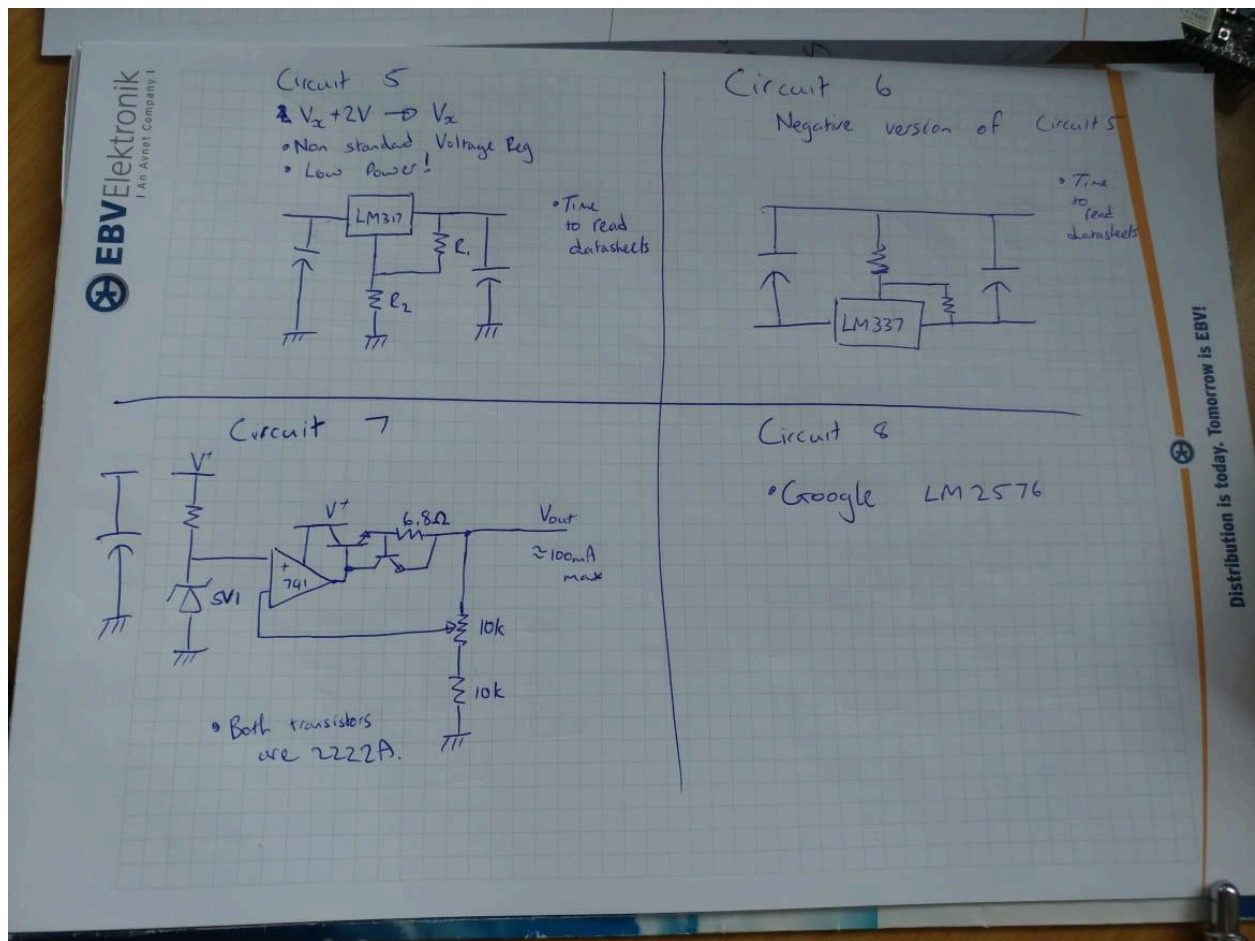 EBVElektronik
I An Avnet Company I
Circuit 5
Vx +2V → Vx
• Non standard Voltage Reg
• Low Power!
LM317
R1
R2
• Time
to read
datasheets
Circuit 6
Negative version of Circuit 5
• Time
to
read
datasheets
LM337
Circuit 7
V+
V+
6.8Ω
Vout
≈100mA
max
+
741
5V1
10k
10k
• Both transistors
are 2222A.
Circuit 8
• Google LM2576
Distribution is today. Tomorrow is EBV!